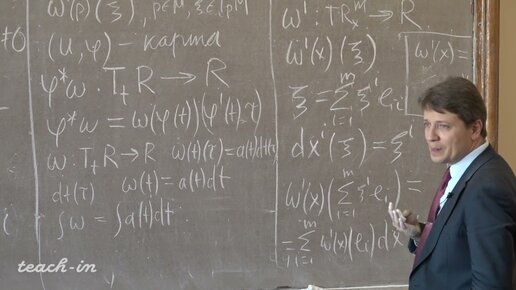 ω'(p)(ξ), p∈M, ξ∈T_pM
≠0
(U, φ) – карта
φ*ω : T_t R → R
φ*ω = ω(φ(t))(φ'(t)τ)
ω : T_t R → R ω(t)(τ) = a(t)dt(τ)
dt(τ) ω(t) = a(t)dt
∫ω = ∫a(t)dt
ω' : TR_x^m → R
ω'(x)(ξ)
ξ = Σ_{i=1}^m ξ^i e_i
dx^i(ξ) = ξ^i
ω'(x)(Σ_{i=1}^m ξ^i e_i) =
= Σ_{i=1}^m ω'(x)(e_i) dx
ω'(x) =
teach-in